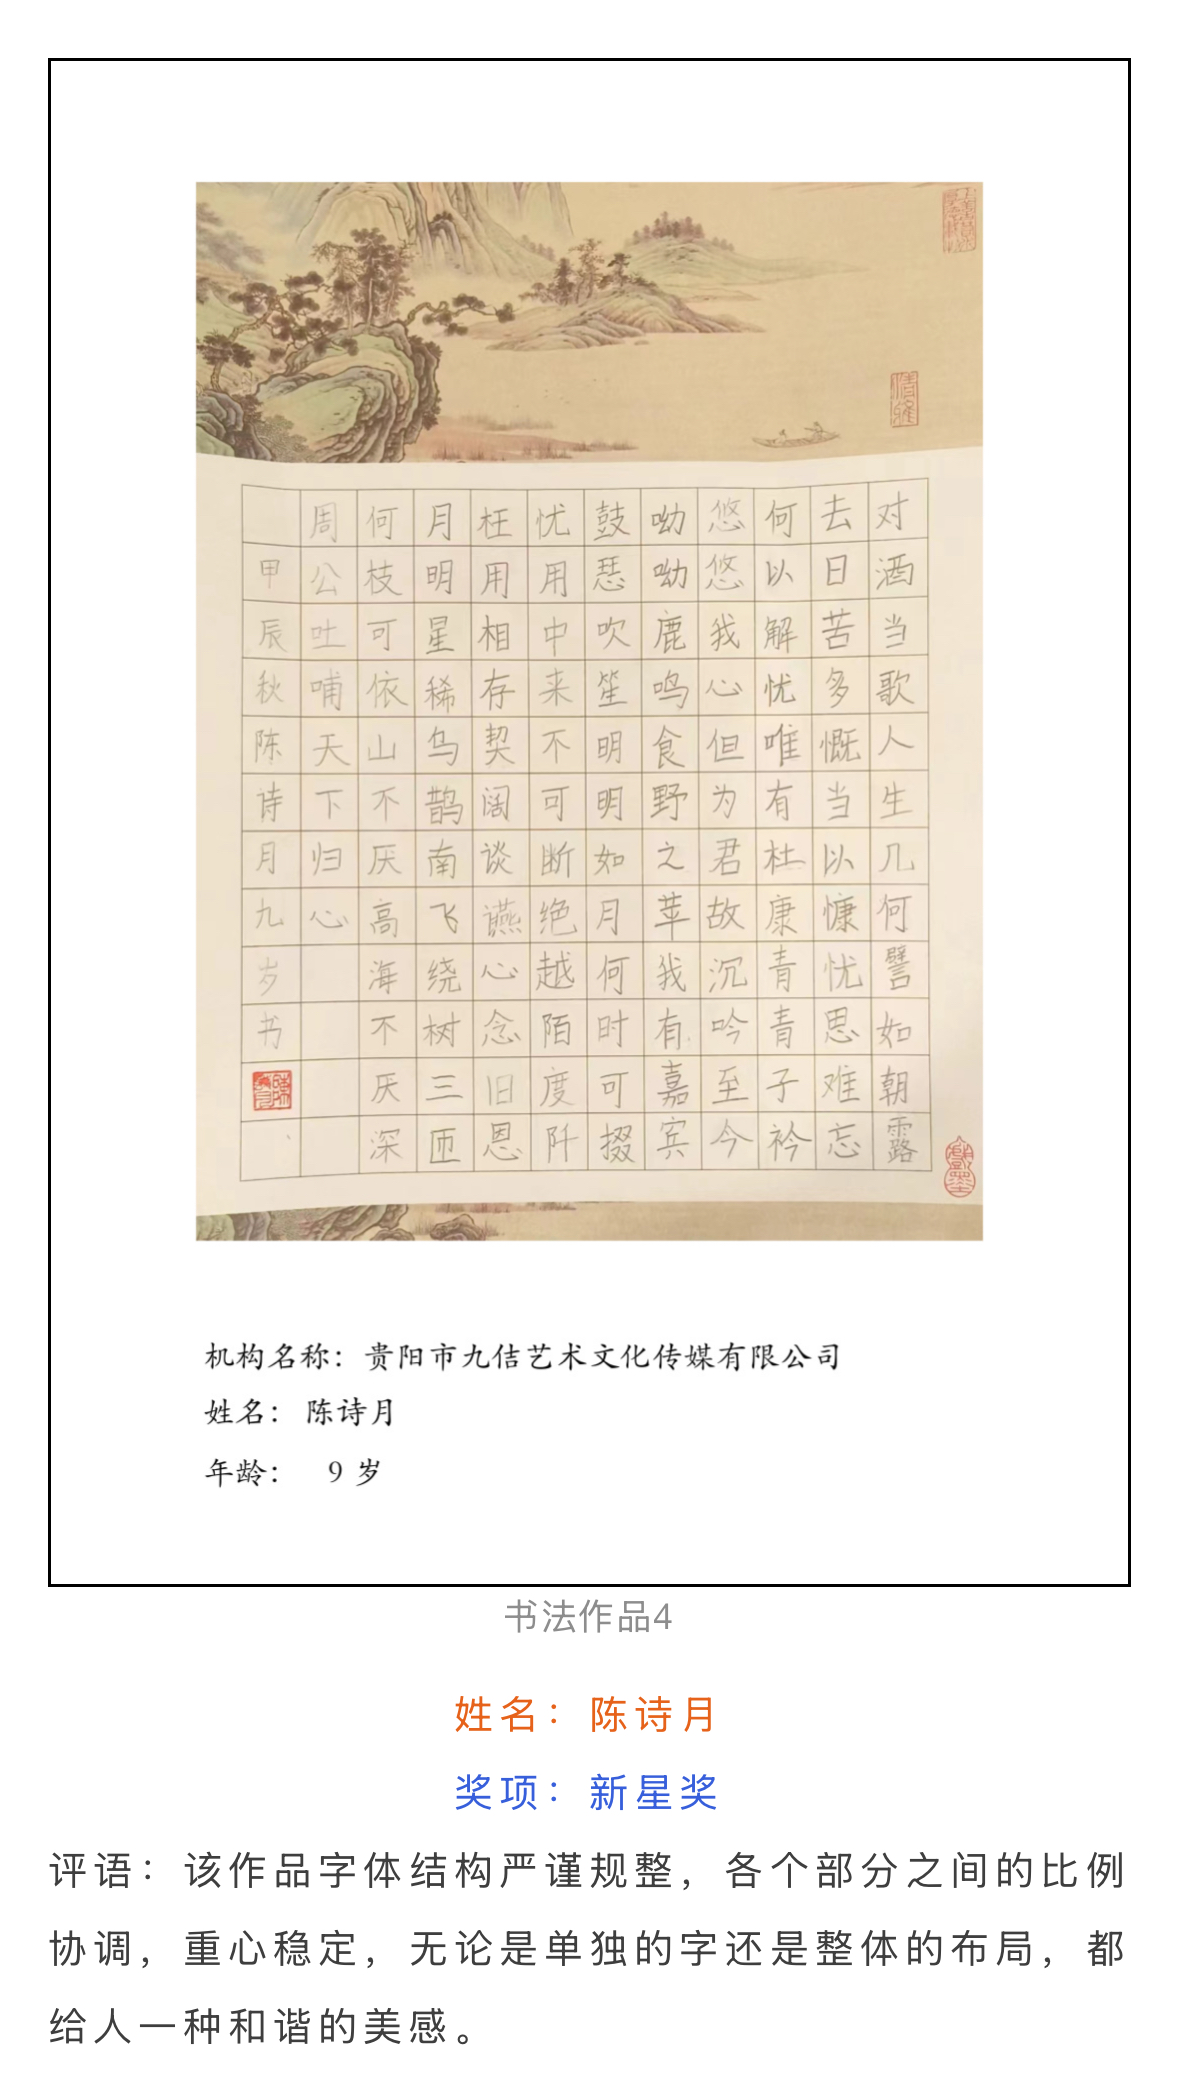 对酒当歌人生几何譬如朝露
去日苦多慨当以慷忧思难忘
何以解忧唯有杜康青青子衿
悠悠我心但为君故沉吟至今
呦呦鹿鸣食野之苹我有嘉宾
鼓瑟吹笙明明如月何时可掇
忧用中来不可断绝越陌度阡
枉用相存契阔谈䜩心念旧恩
月明星稀乌鹊南飞绕树三匝
何枝可依山不厌高海不厌深
周公吐哺天下归心
甲辰秋陈诗月九岁书
机构名称：贵阳市九佶艺术文化传媒有限公司
姓名： 陈诗月
年龄： 9 岁
书法作品4
姓名：陈诗月
奖项：新星奖
评语：该作品字体结构严谨规整，各个部分之间的比例
协调，重心稳定，无论是单独的字还是整体的布局，都
给人一种和谐的美感。